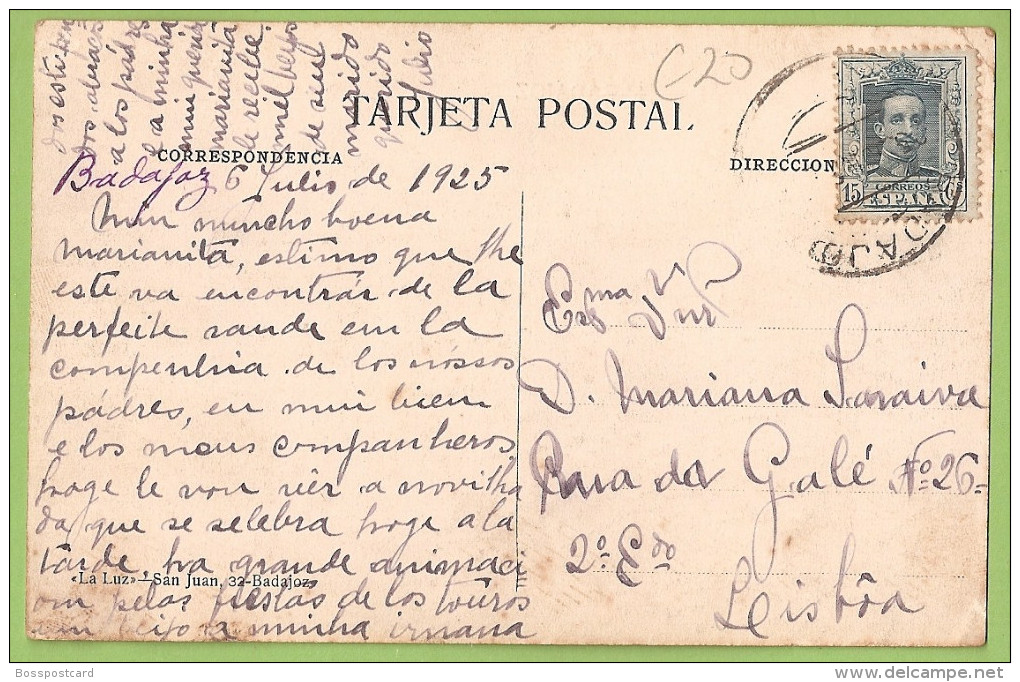 TARJETA POSTAL
CORRESPONDENCIA
DIRECCION
€20
15
CORREOS
ESPAÑA
Badajoz 6 Julio de 1925
Min muncho buena
marianita, estimo que lhe
este va encontrár de la
perfeite saude em la
companhia de los nóssos
pádres, eu mui biem
e los meus companheros,
hoge le vou vêr a novilha
da que se selebra hoge a la
tarde, ha grande animaci
om pelas fiestas de los touros
um beijo a minha irmana
dos
dos abraços
a los pádres
e a minha
marianita
le recebe
mil beijos
de seu
marido
querido
Julio
«La Luz»—San Juan, 32-Badajoz
Exma Snra
D. Mariana Saraiva
Rua da Galé Nº 26=
2º Edo
Lisbôa
Bosspostcard
www.delcampe.net